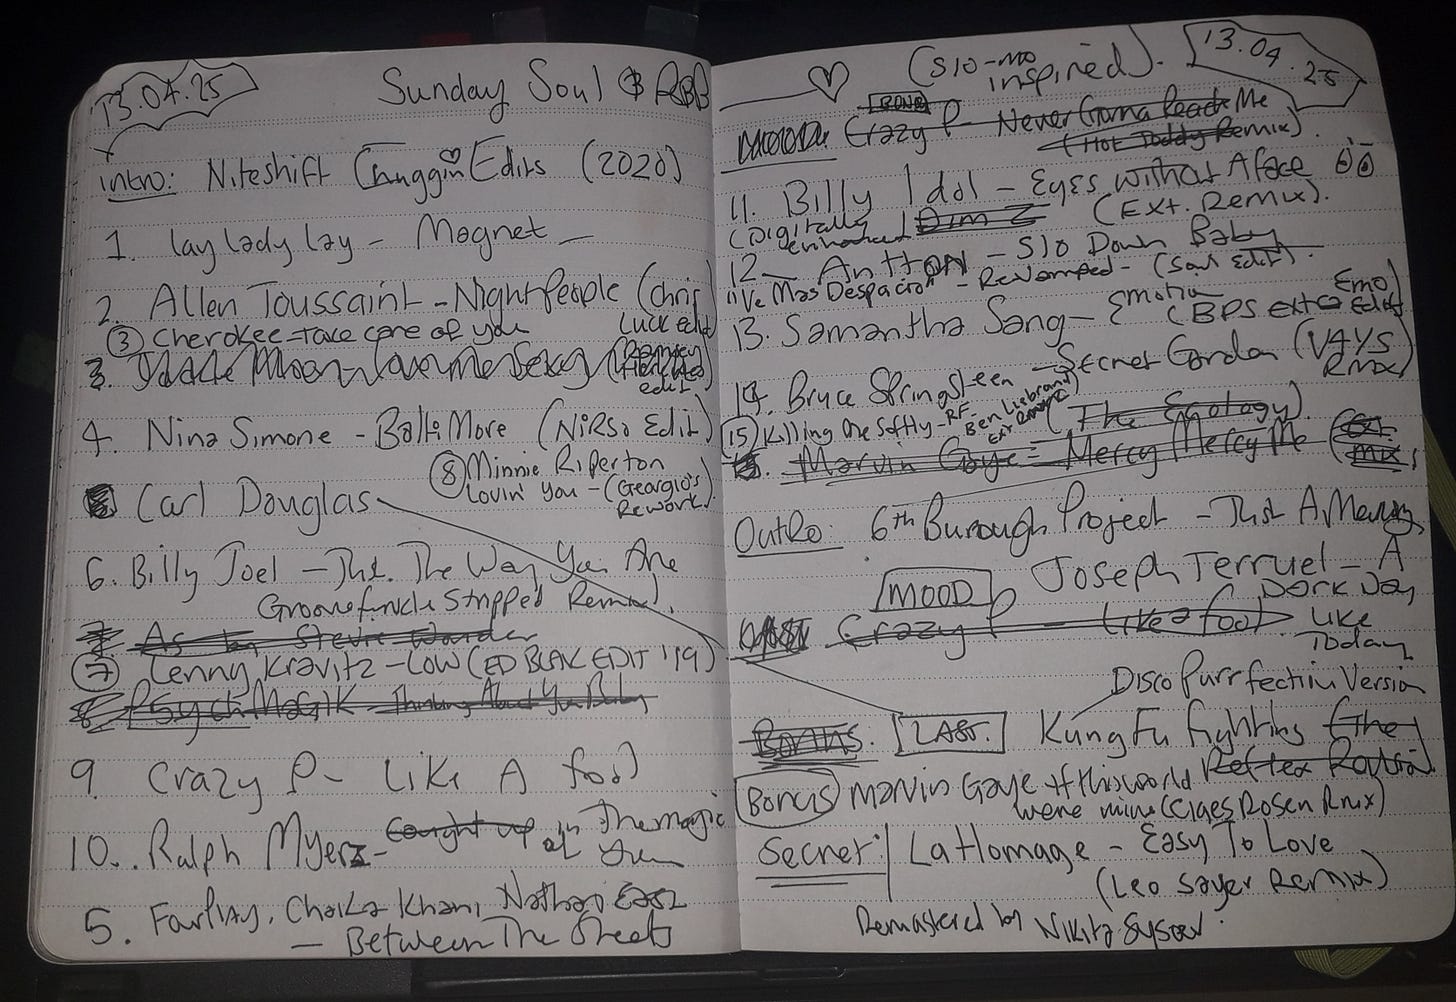 13.04.25
Sunday Soul & R&B
intro: Niteshift Chuggin Edits (2020)
1. lay lady lay - Magnet
2. Allen Toussaint - Nightpeople (Chris
Luck edit)
③ Cherokee - take care of you
3.
edit
4. Nina Simone - Baltimore (NiRSo Edit)
⑧ Minnie Riperton
Lovin' You - (Georgio's
Rework)
Carl Douglas
6. Billy Joel - Just The Way You Are
Groovefunkle Stripped Remix
7. As Stevie Wonder
⑦ Lenny Kravitz - Low (ED BLAK EDIT '19)
8. PsychMagik - Thinking About You Baby
9. Crazy P - Like A fool
10. Ralph Myerz - Caught up in The magic
of You
5. Farlay, Chaka Khan, Nathan East
- Between The Sheets
(Slo-mo
inspired).
13.04.25
Crazy P - Never Gonna Reach Me
(Hot Toddy Remix).
11. Billy Idol - Eyes Without A face
(Ext. Remix).
(Digitally
enhanced)
12 - Antton - Slo Down Baby
"Ve Mas Despacio" - Revamped - (Soul Edit).
13. Samantha Sang - Emotion
(BPS ext Edit)
14. Bruce Springsteen - Secret Garden (VAYS
Rmx)
⑮ Killing Me Softly - RF -
Ben Liebrand
Ext Remix
(The Ecology)
Marvin Gaye - Mercy Mercy Me (Ext.
mix)
OutRo: 6th Burough Project - Just A Memory
MOOD
Joseph Terruel - A
Dark Day
Like
Today
Crazy P - (Like a fool)
Disco Purrfection Version
Bonus. LAST. Kung Fu Fighting (The
Reflex Revision
Bonus Marvin Gaye If this world
were mine (Claes Rosen Rmx)
Secret: LaHomage - Easy To Love
(Leo Sayer Remix)
Remastered by Nikita